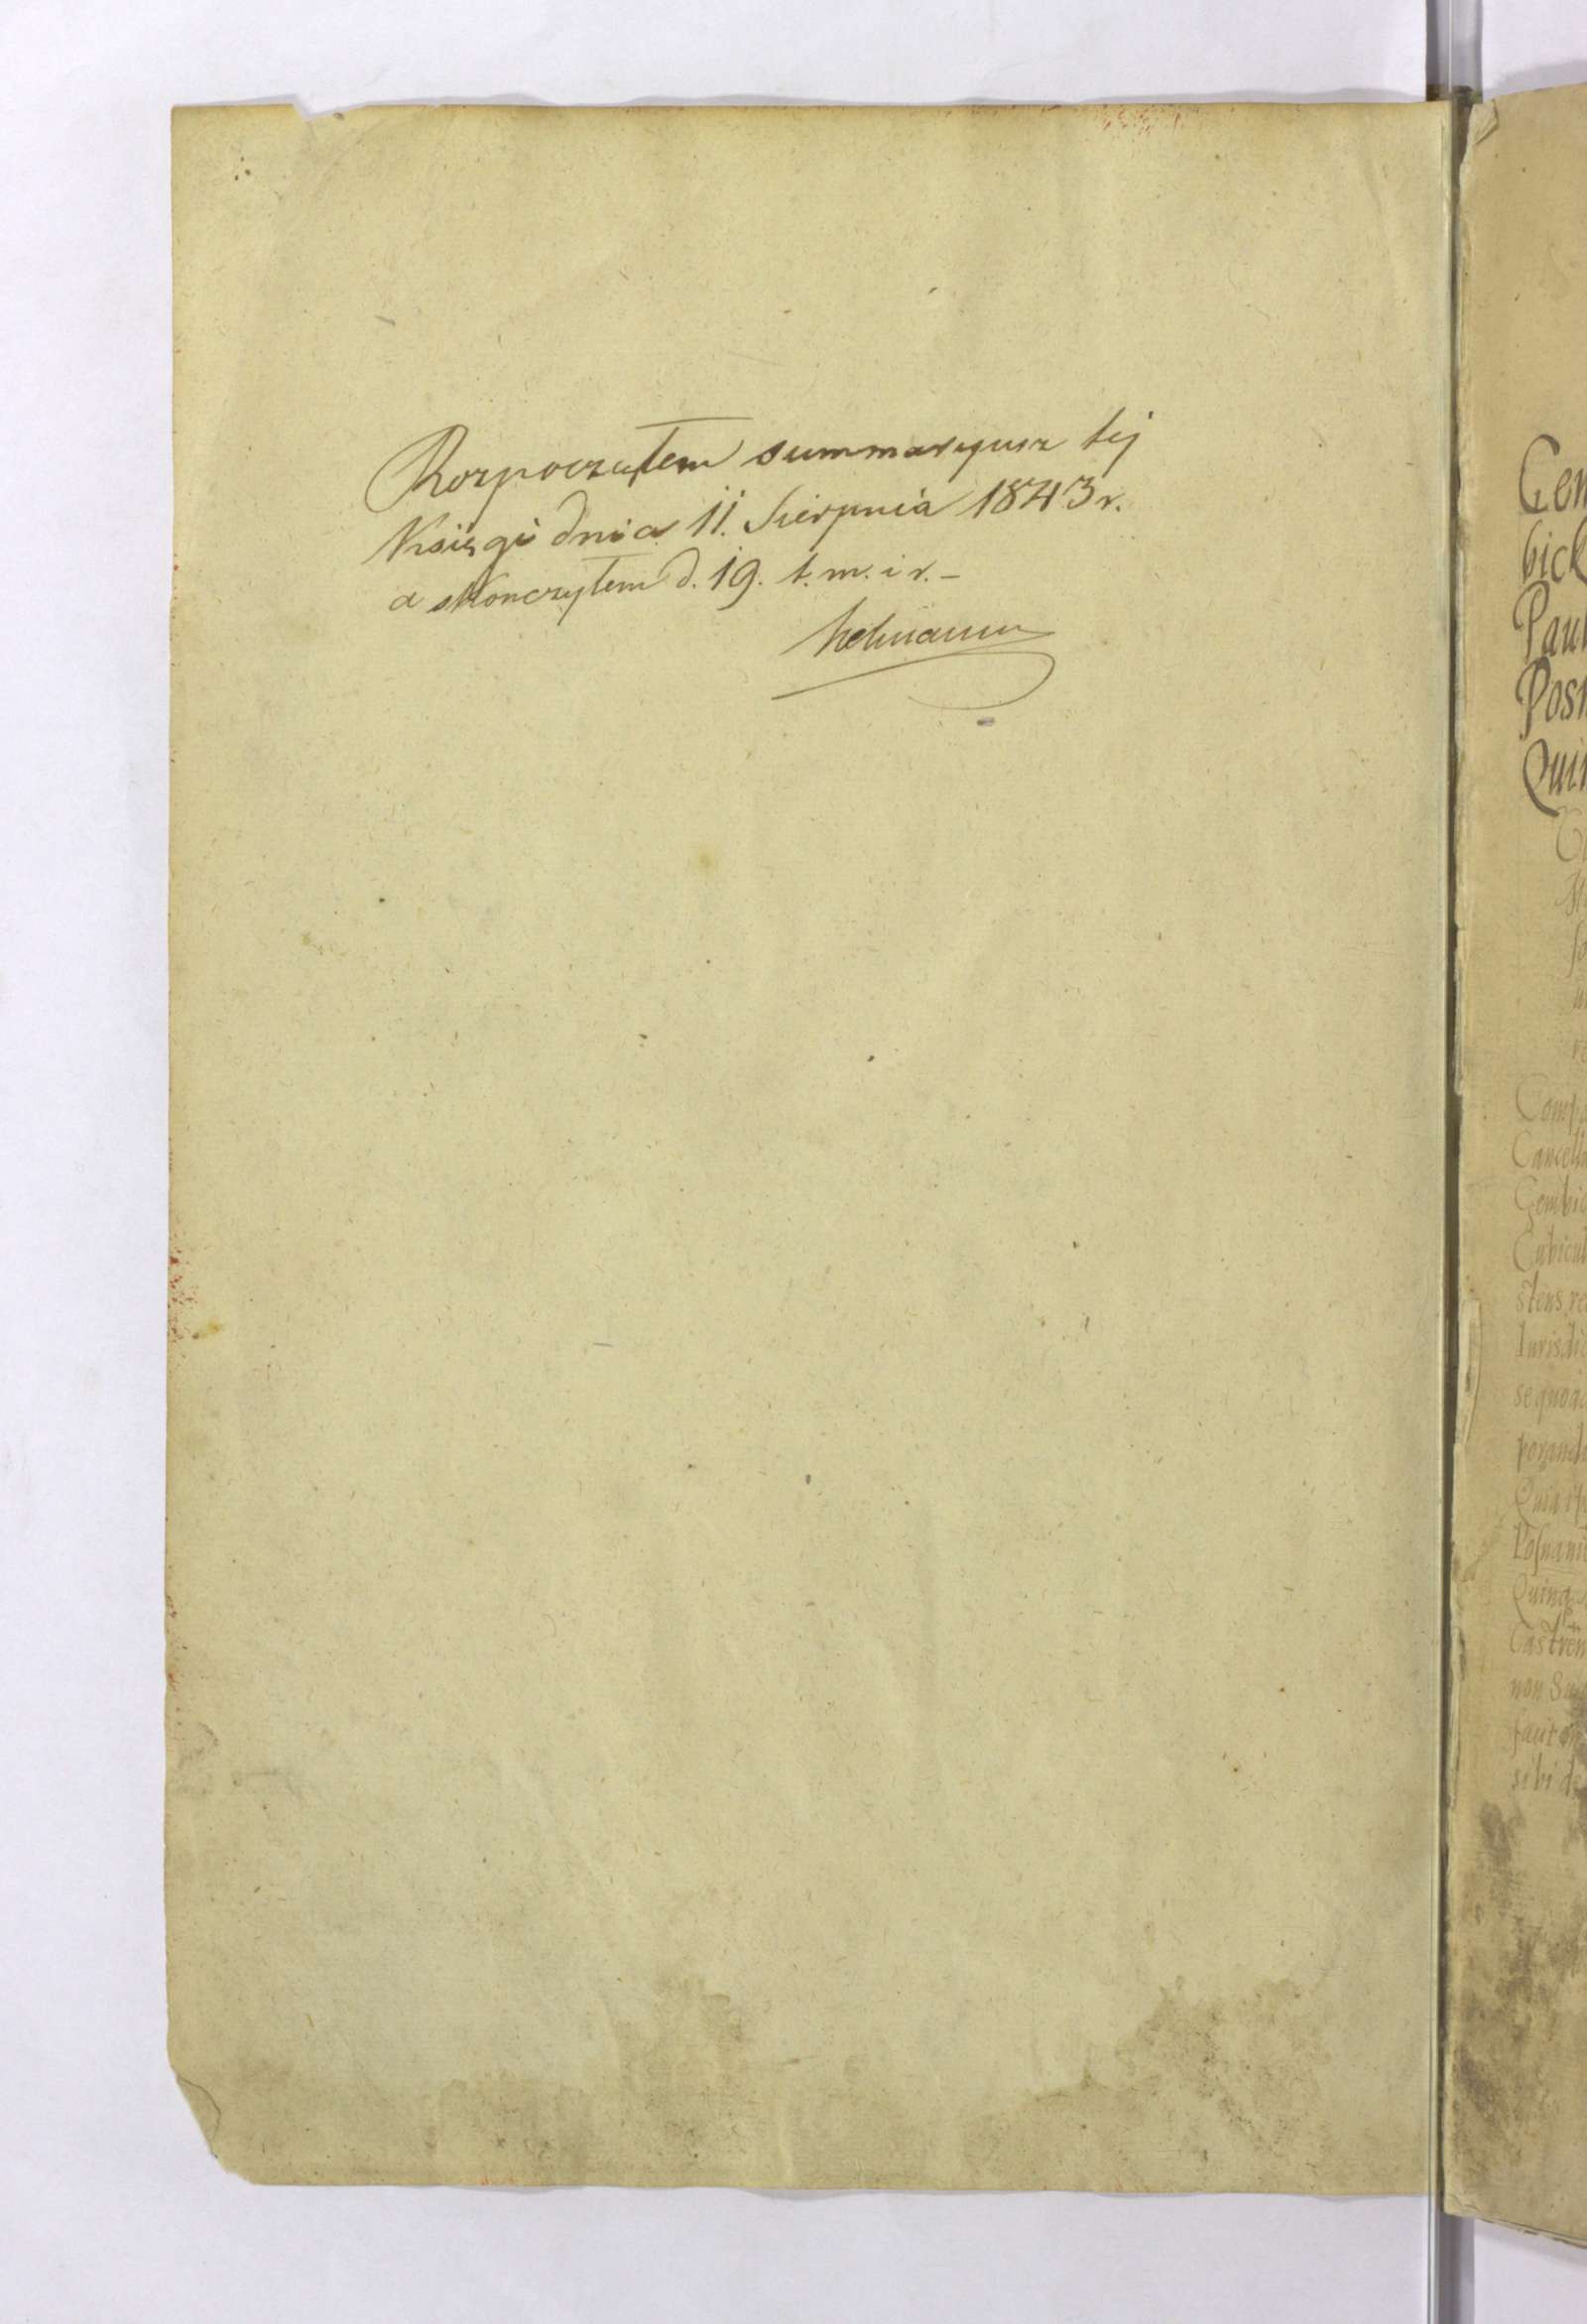 Rozpocząłem summaryusz téj
Księgi dnia 11. Sierpnia 1843 r.
a skonczyłem d. 19. t. m. i r. –
Gem
bick
Pau
Posn
Qui
Comp
Cancell
Gembic
Cubicul
stens re
Iurisdic
se quoq
Posnani
Quinq
Castren
non
sibi de